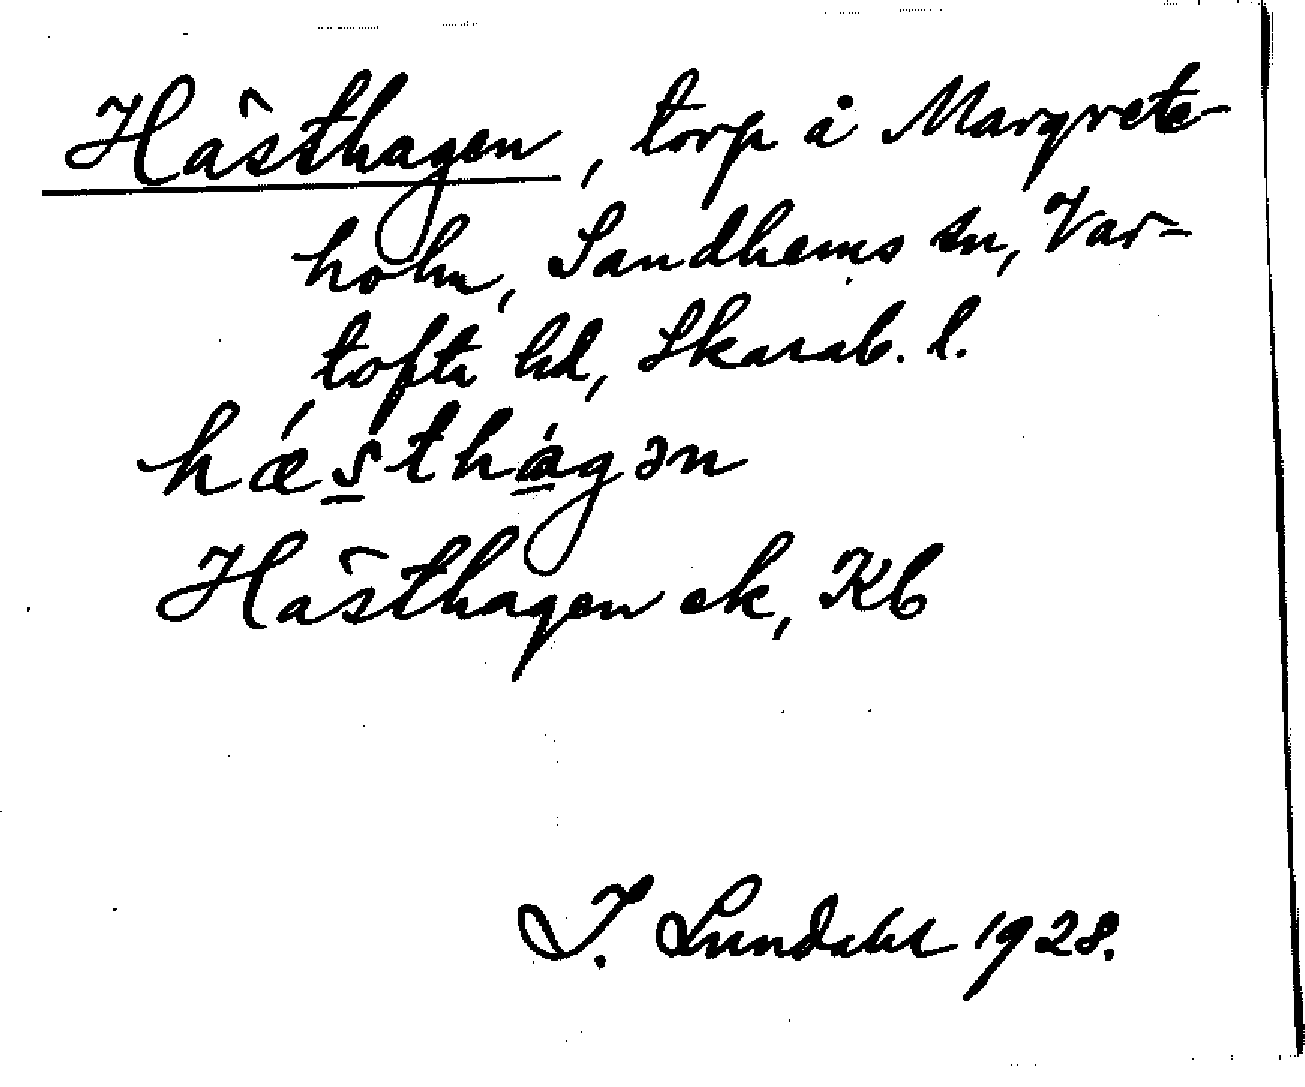 Hästhagen, torp å Margrete-
holm, Sandhems sn, Var-
tofta hd, Skarab. l.
hǽsthágən
Hästhagen ek, Kb
I. Lundahl 1928.